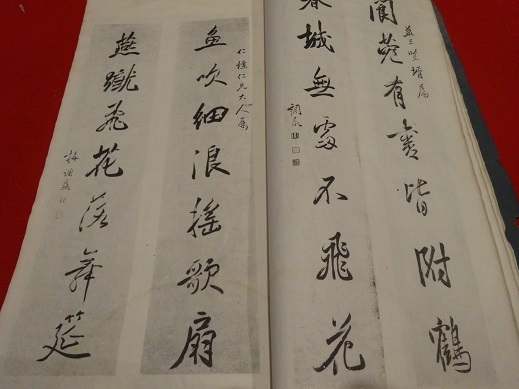 閬苑有書皆附鶴
益三賢壻屬
春城無處不飛花
調鼎
魚吹細浪搖歌扇
仁兄大人屬
燕蹴飛花落舞筵
梅調鼎